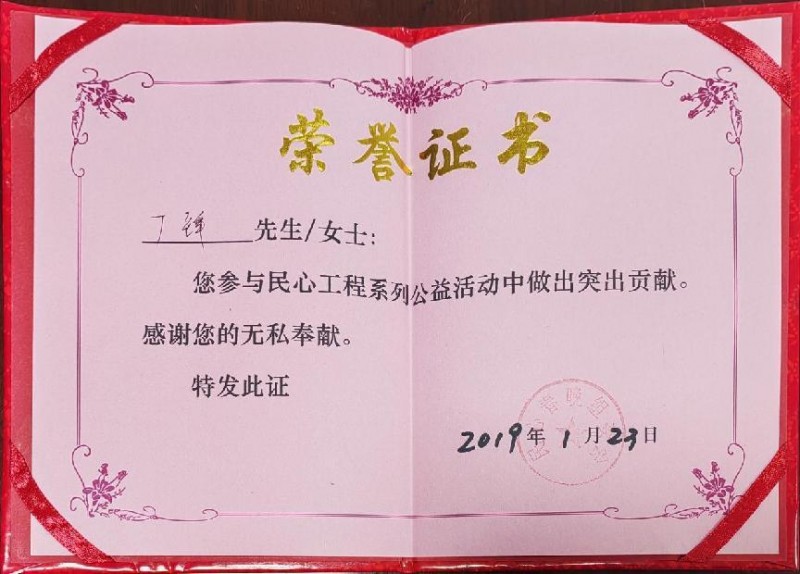 荣誉证书
丁 先生/女士:
您参与民心工程系列公益活动中做出突出贡献。
感谢您的无私奉献。
特发此证
2019年1月23日
春晚组